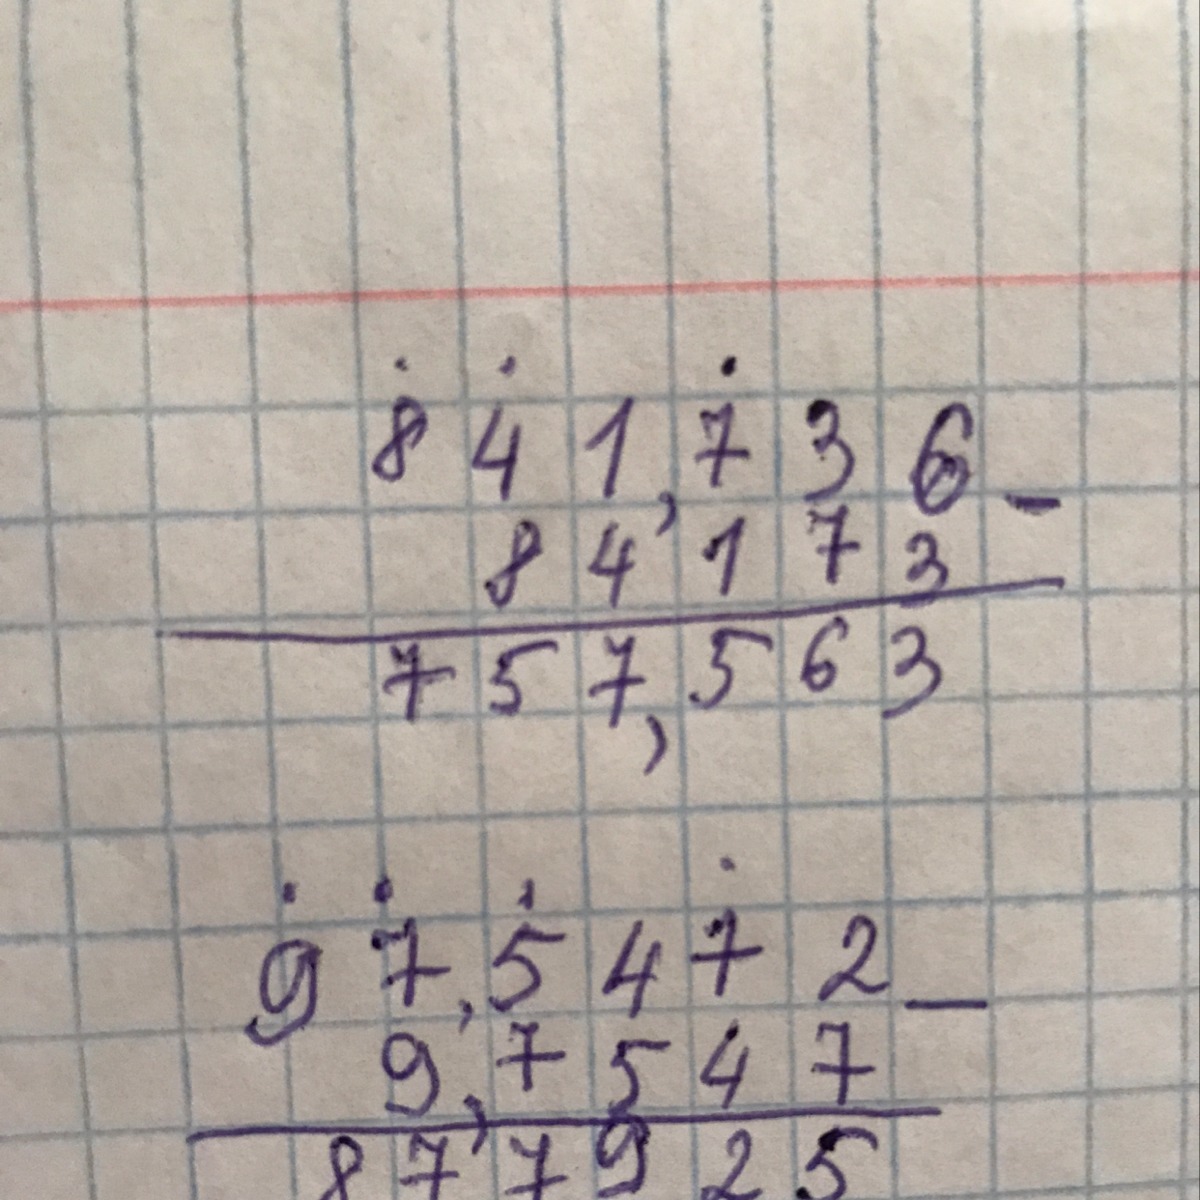 841,736 -
84,173
757,563
97,5472 -
9,7547
87,7925